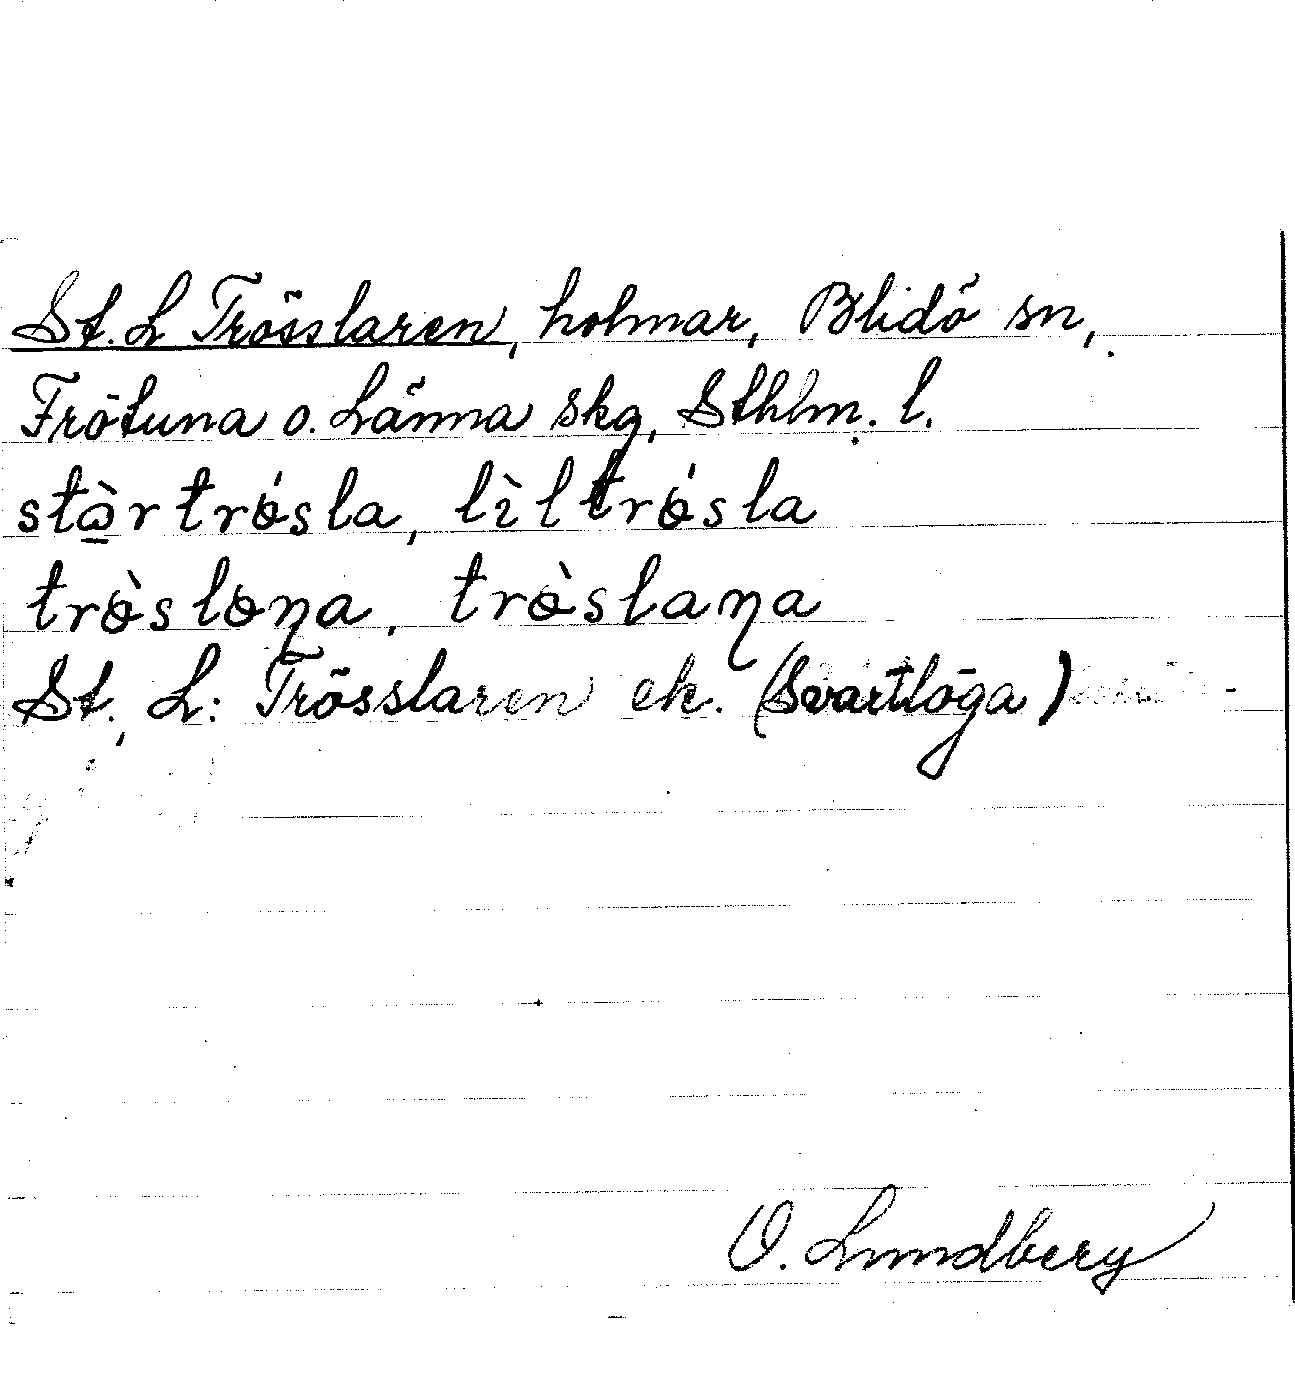 St. L Trösslaren, holmar, Blidö sn,
Frötuna o. Länna skg, Sthlm. l.
stɷ̀r trǿsla, lìl trǿsla
trø̀sløɳa, trø̀slaɳa
St. L: Trösslaren ek. (Svartlöga)
O. Lundberg